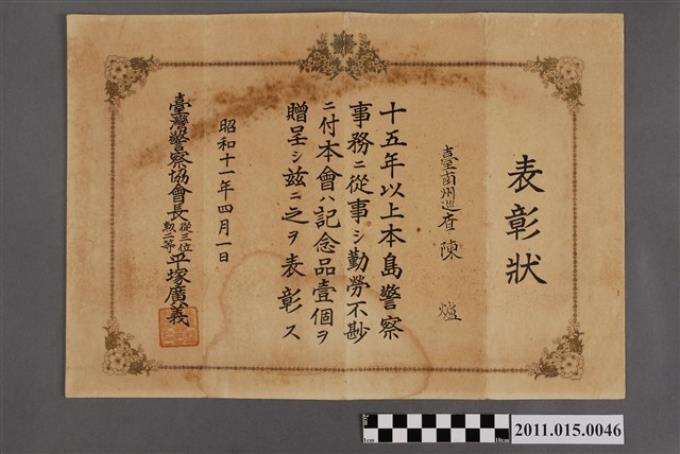 表彰狀
臺南州巡查 陳 爐
十五年以上本島警察
事務ニ從事シ勤勞不尠
ニ付本會ハ記念品壹個ヲ
贈呈シ茲ニ之ヲ表彰ス
昭和十一年四月一日
臺灣警察協會長 從三位 勳二等 平塚廣義
2011.015.0046
1cm
10cm